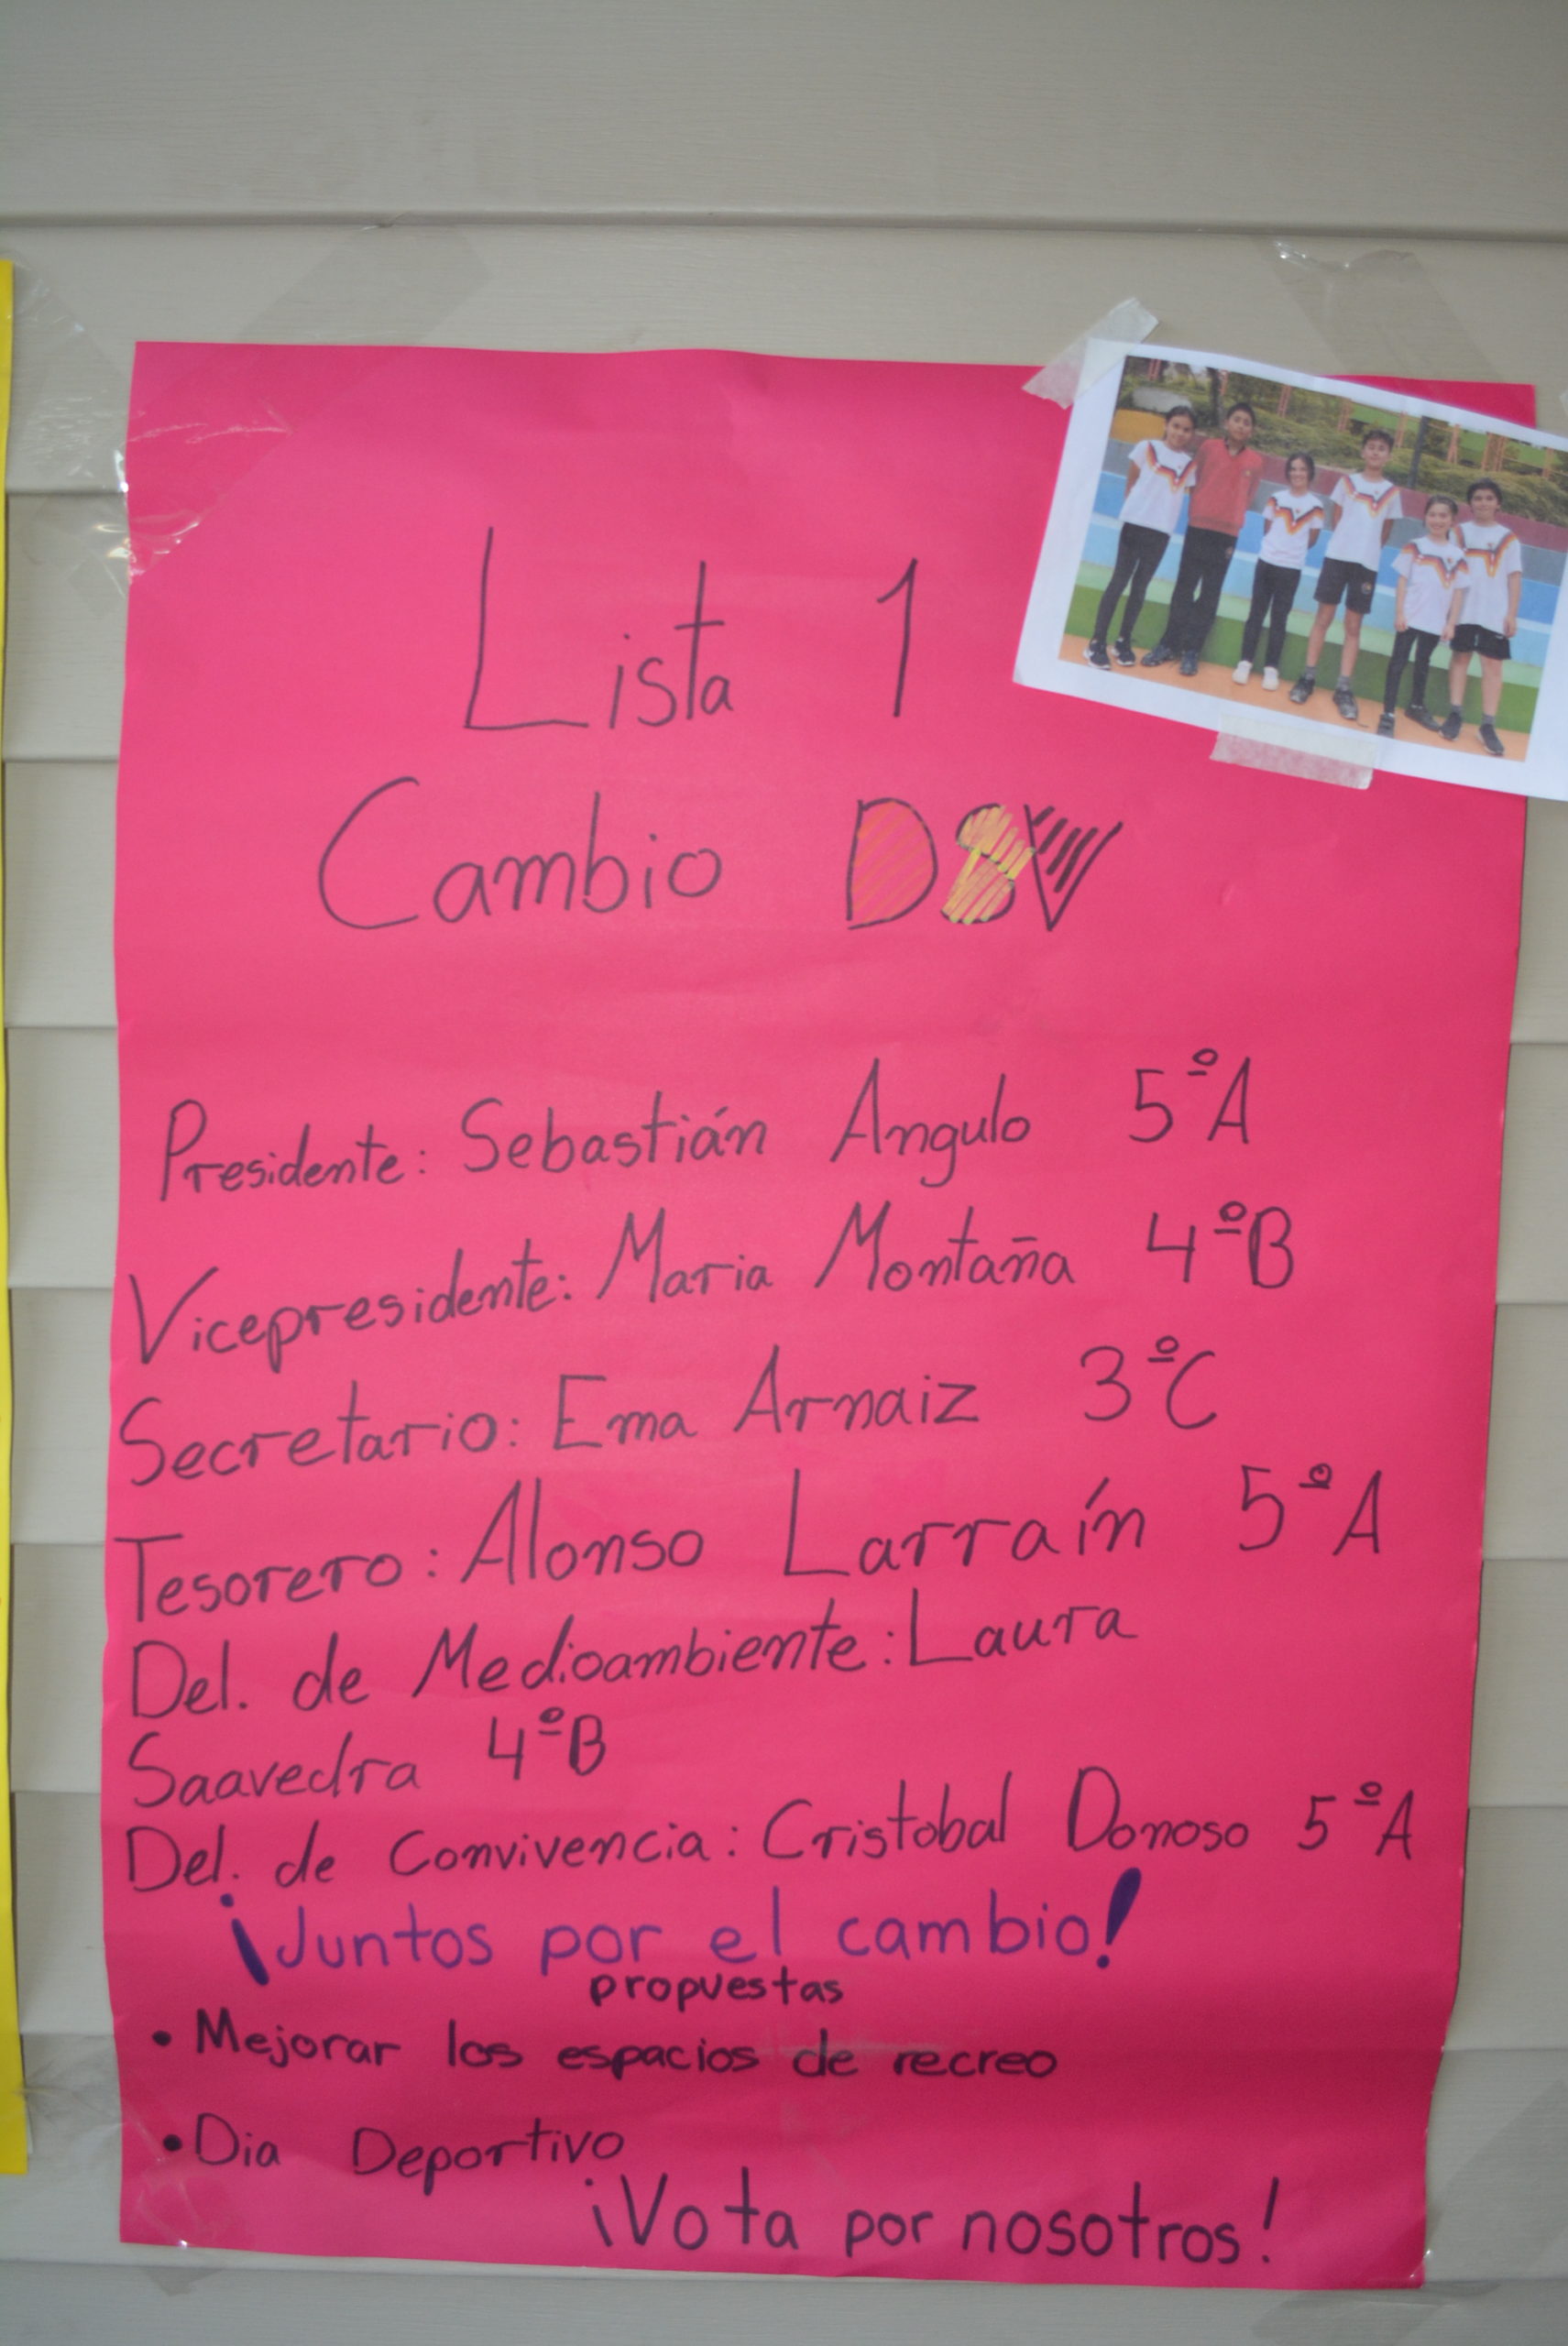 Lista 1
Cambio DSV
Presidente: Sebastián Angulo 5ºA
Vicepresidente: Maria Montaña 4ºB
Secretario: Ema Arnaiz 3ºC
Tesorero: Alonso Larraín 5ºA
Del. de Medioambiente: Laura
Saavedra 4ºB
Del. de Convivencia: Cristobal Donoso 5ºA
¡Juntos por el cambio!
propuestas
• Mejorar los espacios de recreo
• Dia Deportivo
¡Vota por nosotros!